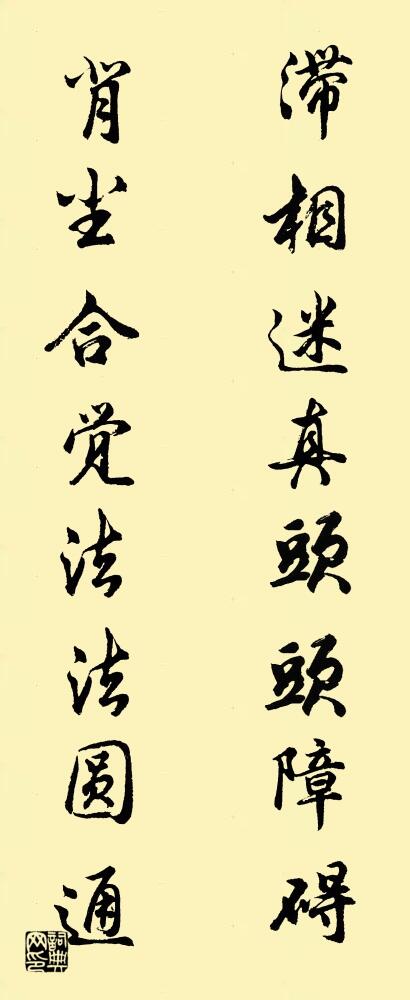 滞相迷真頭頭障碍
背尘合觉法法圆通
词典网印